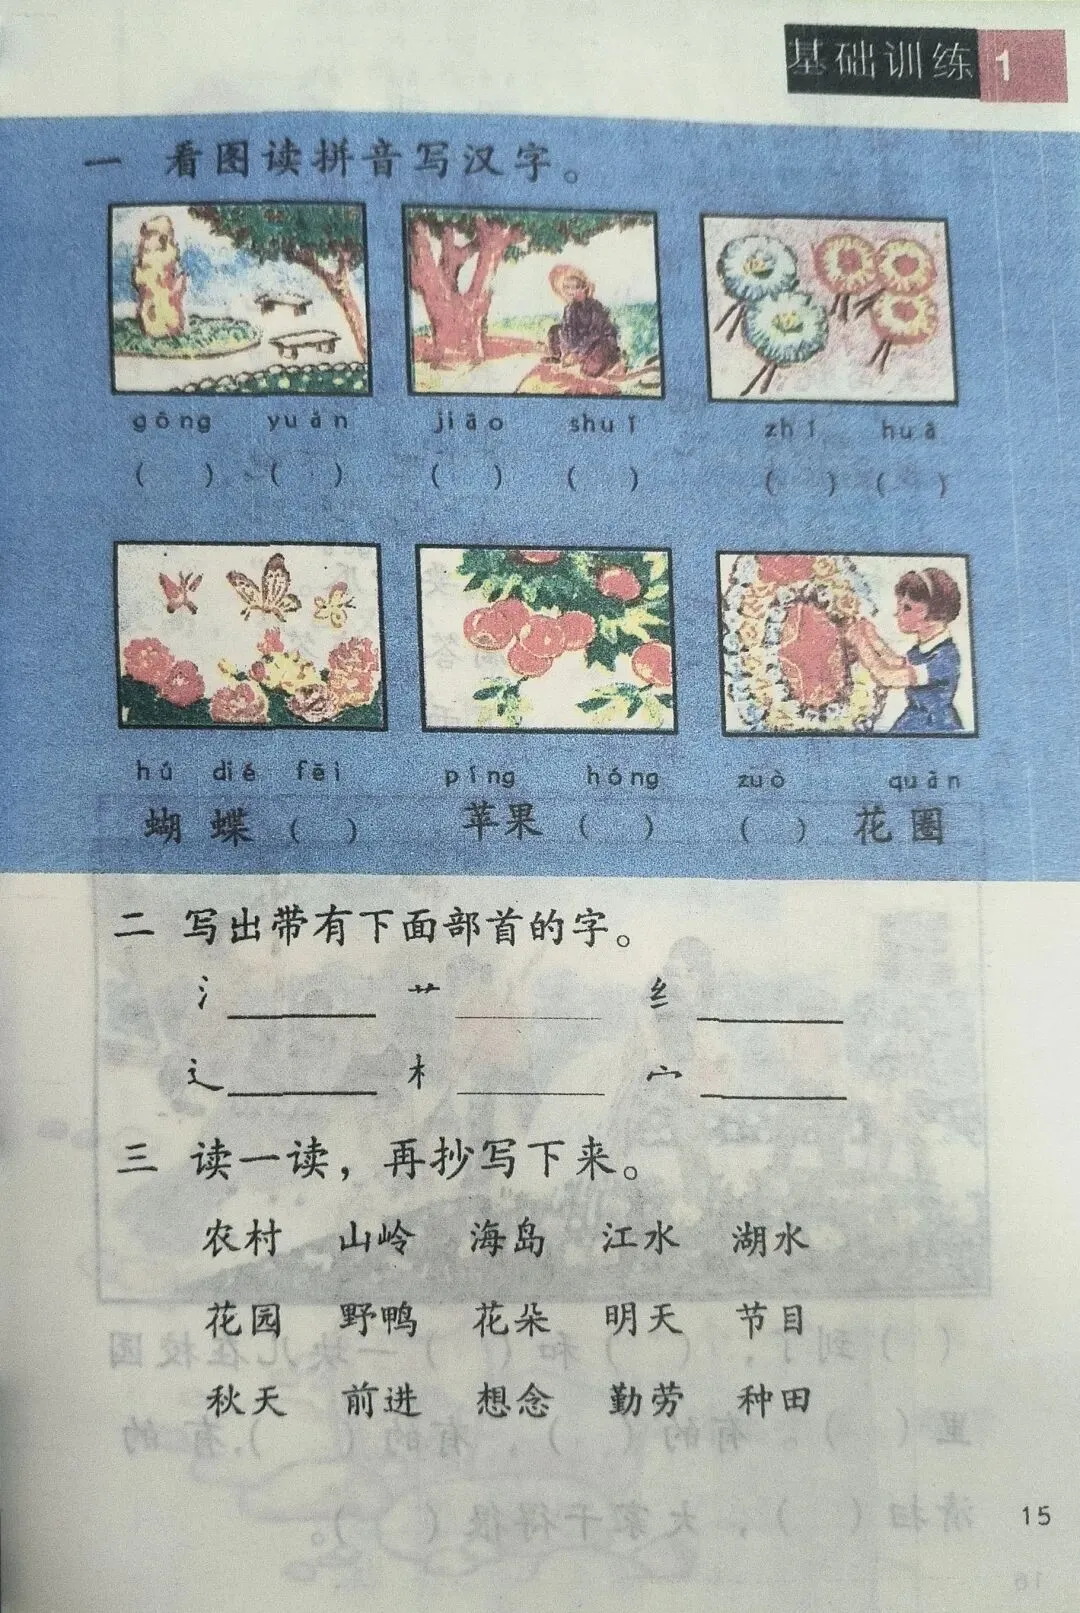 基础训练 1
一 看图读拼音写汉字。
gōng yuán jiāo shuǐ zhǐ huā
( ) ( ) ( ) ( ) ( ) ( )
hú dié fēi píng hóng zuò quān
蝴 蝶 ( ) 苹果 ( ) ( ) 花 圈
二 写出带有下面部首的字。
氵____ 艹____ 纟____
辶____ 木____ 宀____
三 读一读，再抄写下来。
农村 山岭 海岛 江水 湖水
花园 野鸭 花朵 明天 节目
秋天 前进 想念 勤劳 种田
15